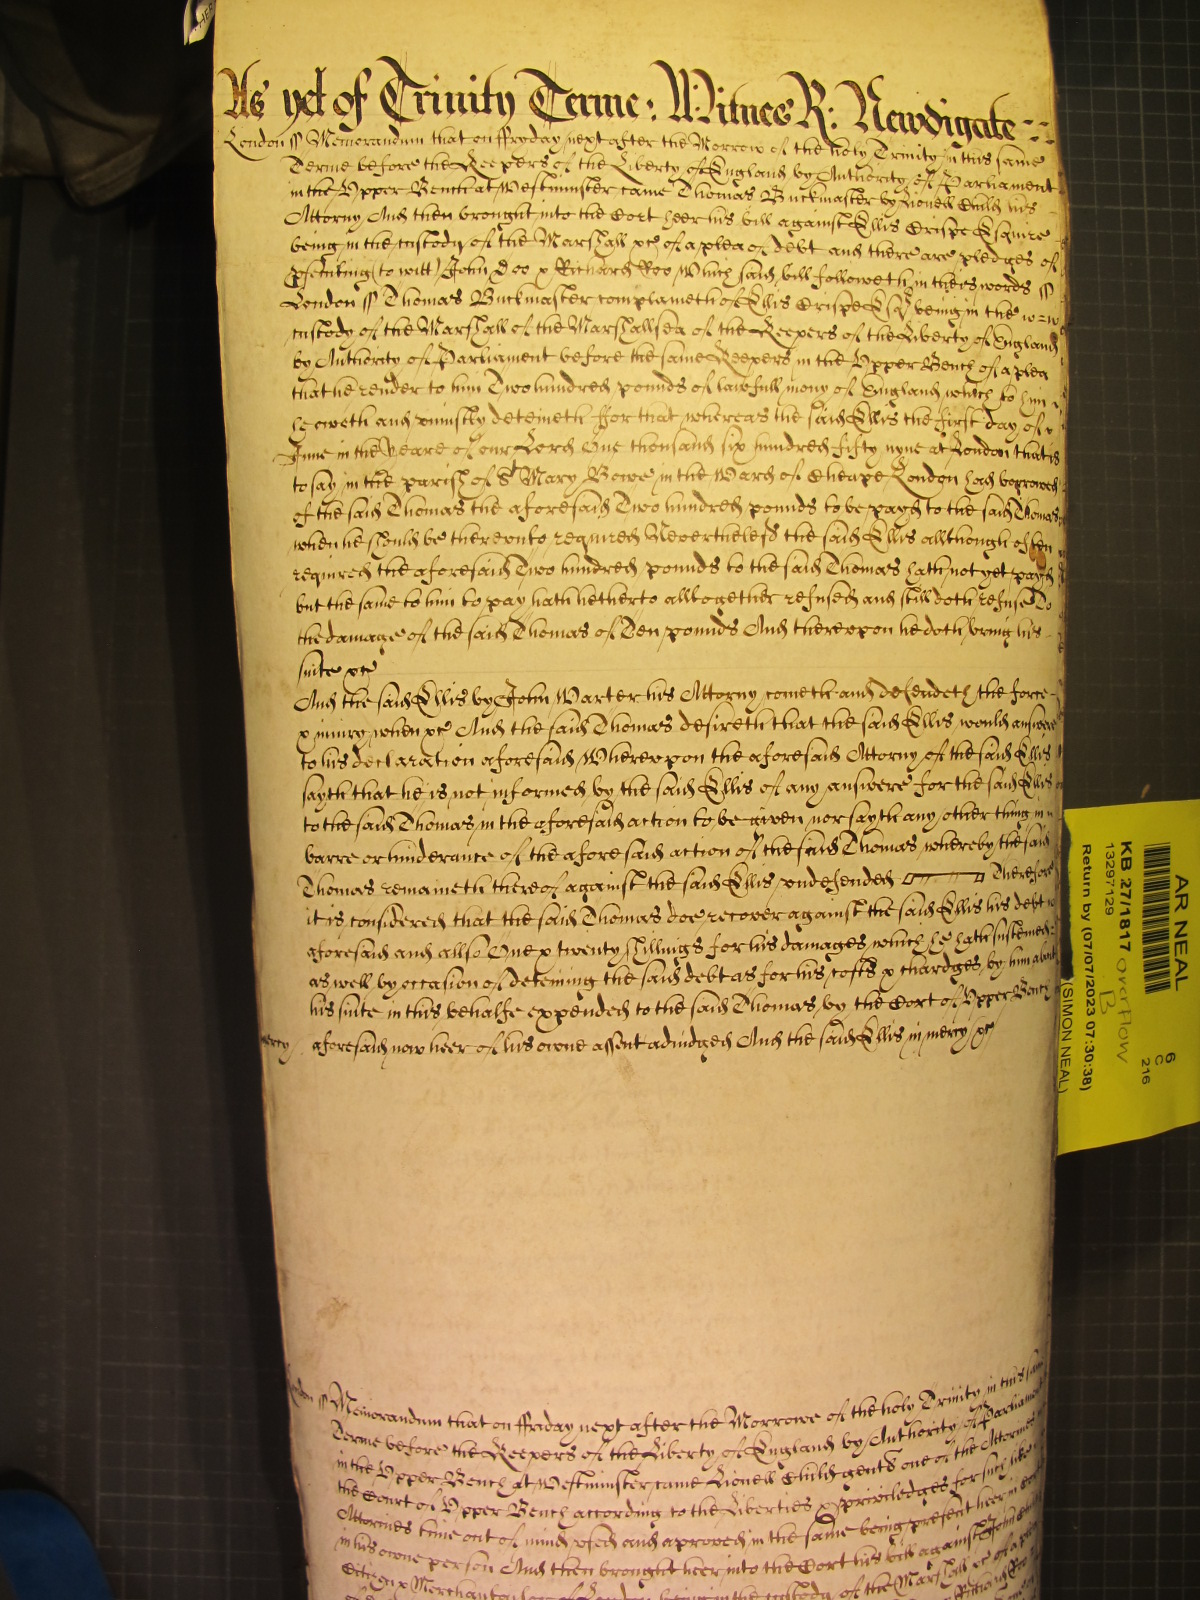 As yet of Trinity Terme: Witnes R: Newdigate
London ss Memorandum that on ffryday next after the Morrow of the holy Trinity in this same
Terme before the Keepers of the Liberty of England by Authority of Parliament
in the Vpper Bench at Westminster came Thomas Buckmaster by Lionell Child his
Attorny And then brought into the Cort heer his bill against Ellis Crispe Esquire
being in the custody of the Marshall &c of a plea of debt and there are pledges of
psecuting (to witt) John Doo & Richard Roo Which said bill followeth in theis words ss
London ss Thomas Buckmaster complaineth of Ellis Crispe Esq being in the
custody of the Marshall of the Marshallsea of the Keepers of the Liberty of England
by Authority of Parliament before the same Keepers in the Vpper Bench of a plea
that he render to him Two hundred pounds of lawfull mony of England which to him
he oweth and vniustly deteineth ffor that whereas the said Ellis the first day of
June in the yeare of our Lord One thousand six hundred fifty nyne at London that is
to say in the parish of St Mary Bowe in the Ward of Cheape London had borrowed
of the said Thomas the aforesaid Two hundred pounds to be payd to the said Thomas
when he should be therevnto required Neverthelesse the said Ellis allthough often
required the aforesaid Two hundred pounds to the said Thomas hath not yet payd
but the same to him to pay hath hetherto alltogether refused and still doth refuse To
the damage of the said Thomas of Ten pounds And therevpon he doth bring his
suite &c
And the said Ellis by John Warter his Attorny cometh and defendeth the force
& iniury when &c And the said Thomas desireth that the said Ellis would answere
to his declaration aforesaid Wherevpon the aforesaid Attorny of the said Ellis
sayth that he is not informed by the said Ellis of any answere for the said Ellis
to the said Thomas in the aforesaid action to be given nor sayth any other thing in
barre or hinderance of the aforesaid action of the said Thomas whereby the said
Thomas remaineth thereof against the said Ellis vndefended Therefore
it is considered that the said Thomas doe recover against the said Ellis his debt
aforesaid and allso One & twenty shillings for his damages which he hath susteined
as well by occasion of deteining the said debt as for his costs & chardges by him about
his suite in this behalfe expended to the said Thomas by the Cort of Vpper Bench
mercy aforesaid now heer of his owne assent adiudged And the said Ellis in mercy &c
London ss Memorandum that on ffriday next after the Morrowe of the holy Trinity in this same
Terme before the Keepers of the Liberty of England by Authority of Parliament
in the Vpper Bench at Westminster came Lionell Child gent one of the Attornies
the Court of Vpper Bench according to the Liberties & priviledges for such like
Attornies time out of mind vsed and aproved in the same being present heer in
in his owne person And then brought heer into the Cort his bill against John
Citizen & Merchant of London being in the custody of the Marshall &c of a
AR NEAL
6
C
216
KB 27/1817 overflow
B
13297129
(SIMON NEAL)
Return by (07/07/2023 07:30:38)